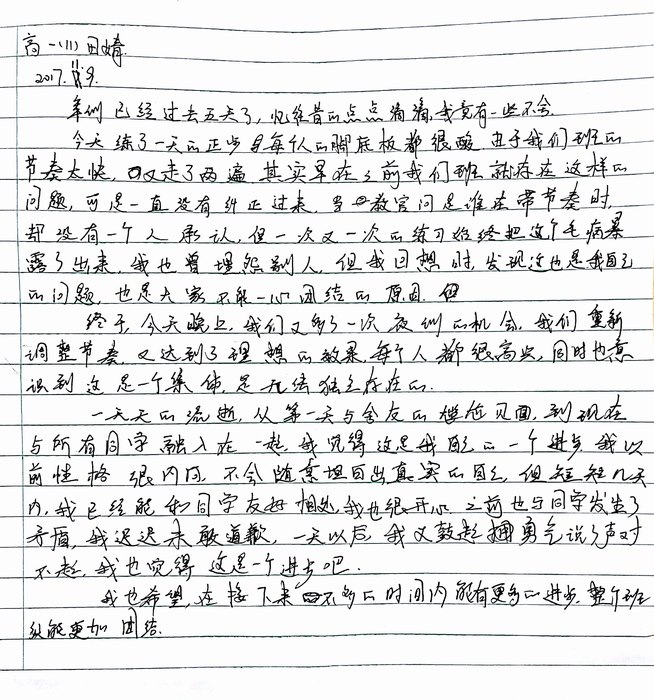 高一(11) 田婧
2017.11.9.
军训已经过去五天了,忆往昔的点点滴滴,我竟有一些不舍.
今天练了一天的正步,每个人的脚底板都很酸.由于我们班的
节奏太快,又走了两遍.其实早在之前我们班就存在这样的
问题,可是一直没有纠正过来,当教官问是谁在带节奏时,
却没有一个人承认,但一次又一次的练习始终把这个毛病暴
露了出来,我也曾埋怨别人,但我回想时,发现这也是我自己
的问题,也是大家不能一心团结的原因.
终于,今天晚上,我们又多了一次夜训的机会,我们重新
调整节奏,又达到了理想的效果,每个人都很高兴,同时也意
识到这是一个集体,是无法独立存在的.
一天天的流逝,从第一天与舍友的尴尬见面,到现在
与所有同学融入在一起,我觉得这是我自己的一个进步,我以
前性格很内向,不会随意坦白出真实的自己,但短短几天
内,我已经能和同学友好相处,我也很开心.之前也与同学发生了
矛盾,我迟迟未敢道歉,一天以后,我又鼓起勇气说了声对
不起,我也觉得这是一个进步吧.
我也希望,在接下来不多的时间内能有更多的进步,整个班
级能更加团结.